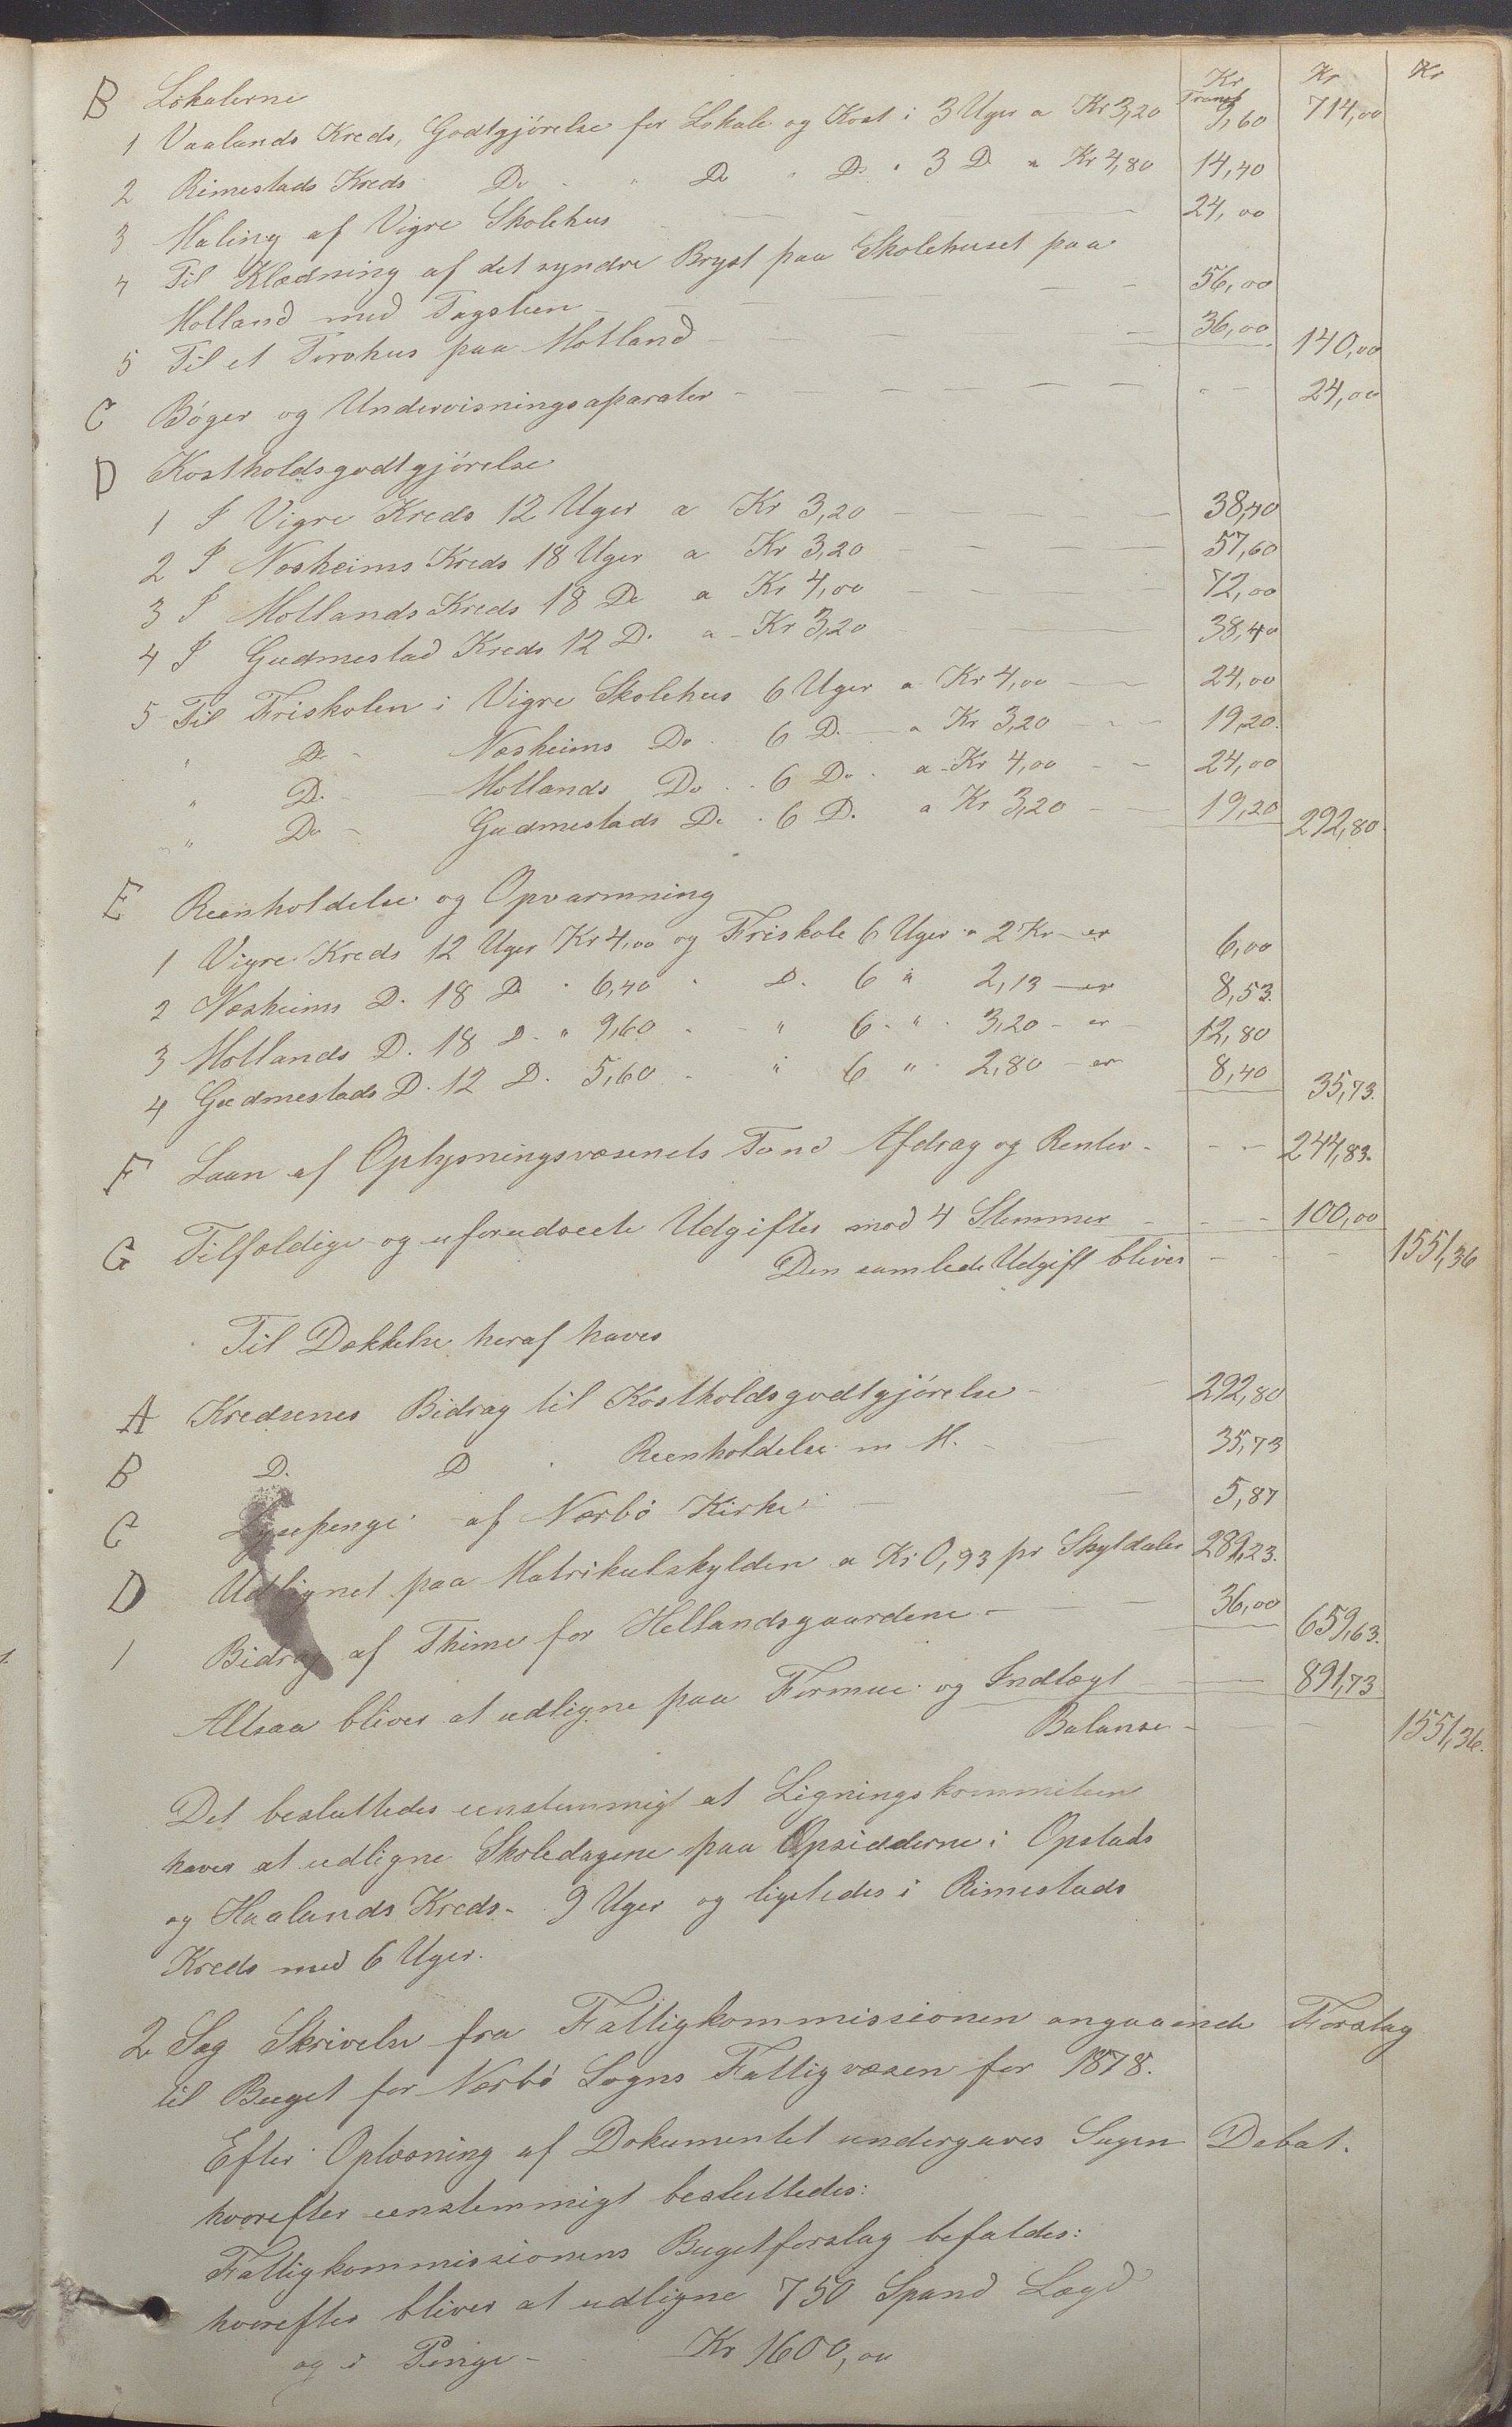 Kr Kr Kr
B Lokalerne Transp 714,00
1 Vaalands Kreds, Godtgjörelse for Lokale og Kost i 3 Uger a Kr 3,20 9,60
2 Rimestads Kreds Do " Do " Do " 3 D. a Kr 4,80 14,40
3 Maling af Vigre Skolehus 24,00
4 Til Klædning af det syndre Bryst paa Skolehuset paa
Motland med Tagsteen 56,00
5 Til et Torvhus paa Motland 36,00 140,00
C Böger og Undervisningsaparater 24,00
D Kostholdsgodtgjörelse
1 I Vigre Kreds 12 Uger a Kr 3,20 38,40
2 I Nærheims Kreds 18 Uger a Kr 3,20 57,60
3 I Motlands Kreds 18 Do a Kr 4,00 72,00
4 I Gudmestad Kreds 12 D. a Kr 3,20 38,40
5 Til Friskolen i Vigre Skolehus 6 Uger a Kr 4,00 24,00
" Do Næsheims Do 6 D. a Kr 3,20 19,20.
" D. Motlands Do 6 Do. a Kr 4,00 24,00
" Do Gudmestads Do. 6 D. a Kr 3,20 19,20 292,80
E Reenholdelse og Opvarmning
1 Vigre Kreds 12 Uger Kr 4,00 og Friskole 6 Uger a 2 Kr er 6,00
2 Næsheims D. 18 D. " 6,40 " D. 6 " 2,13 er 8,53.
3 Motlands D. 18 D. " 9,60 " 6 " 3,20 er 12,80
4 Gudmestads D. 12 D. 5,60 " 6 " 2,80 er 8,40 35,73.
F Laan af Oplysningsvæsenets Fond Afdrag og Renter 244,83.
G Tilfældige og uforudseete Udgifter mod 4 Stemmer 100,00
Den samlede Udgift bliver 1551,36
Til Dækkelse heraf haves
A Kredsenes Bidrag til Kostholdsgodtgjörelse 292,80
B D. D. Reenholdelse m M. 35,73
C Lysepenge af Nærbö Kirke 5,87
D Udlignet paa Matrikulskylden a Kr 0,93 pr Skyldaler 289,23.
1 Bidrag af Thime for Hellandsgaardene 36,00 659,63.
Altsaa bliver at udligne paa Formue og Indtægt 891,73
Balanse 1551,36.
Det besluttedes eenstemmigt at Ligningskommiteen
haver at udligne Skoledagene paa Opsidderne i Opstads
og Haalands Kreds 9 Uger og ligeledes i Rimestads
Kreds med 6 Uger.
2 Sag Skrivelse fra Fattigkommissionen angaaende Forslag
til Buget for Nærbö Sogns Fattigvæsen for 1878.
Efter Oplæsning af Dokumentet undergaves Sagen Debat.
hvorefter eenstemmigt besluttedes:
Fattigkommissionens Bugetforslag befaldes:
hvorefter bliver at udligne 750 Spand Lægd
og i Penge Kr 1600,00